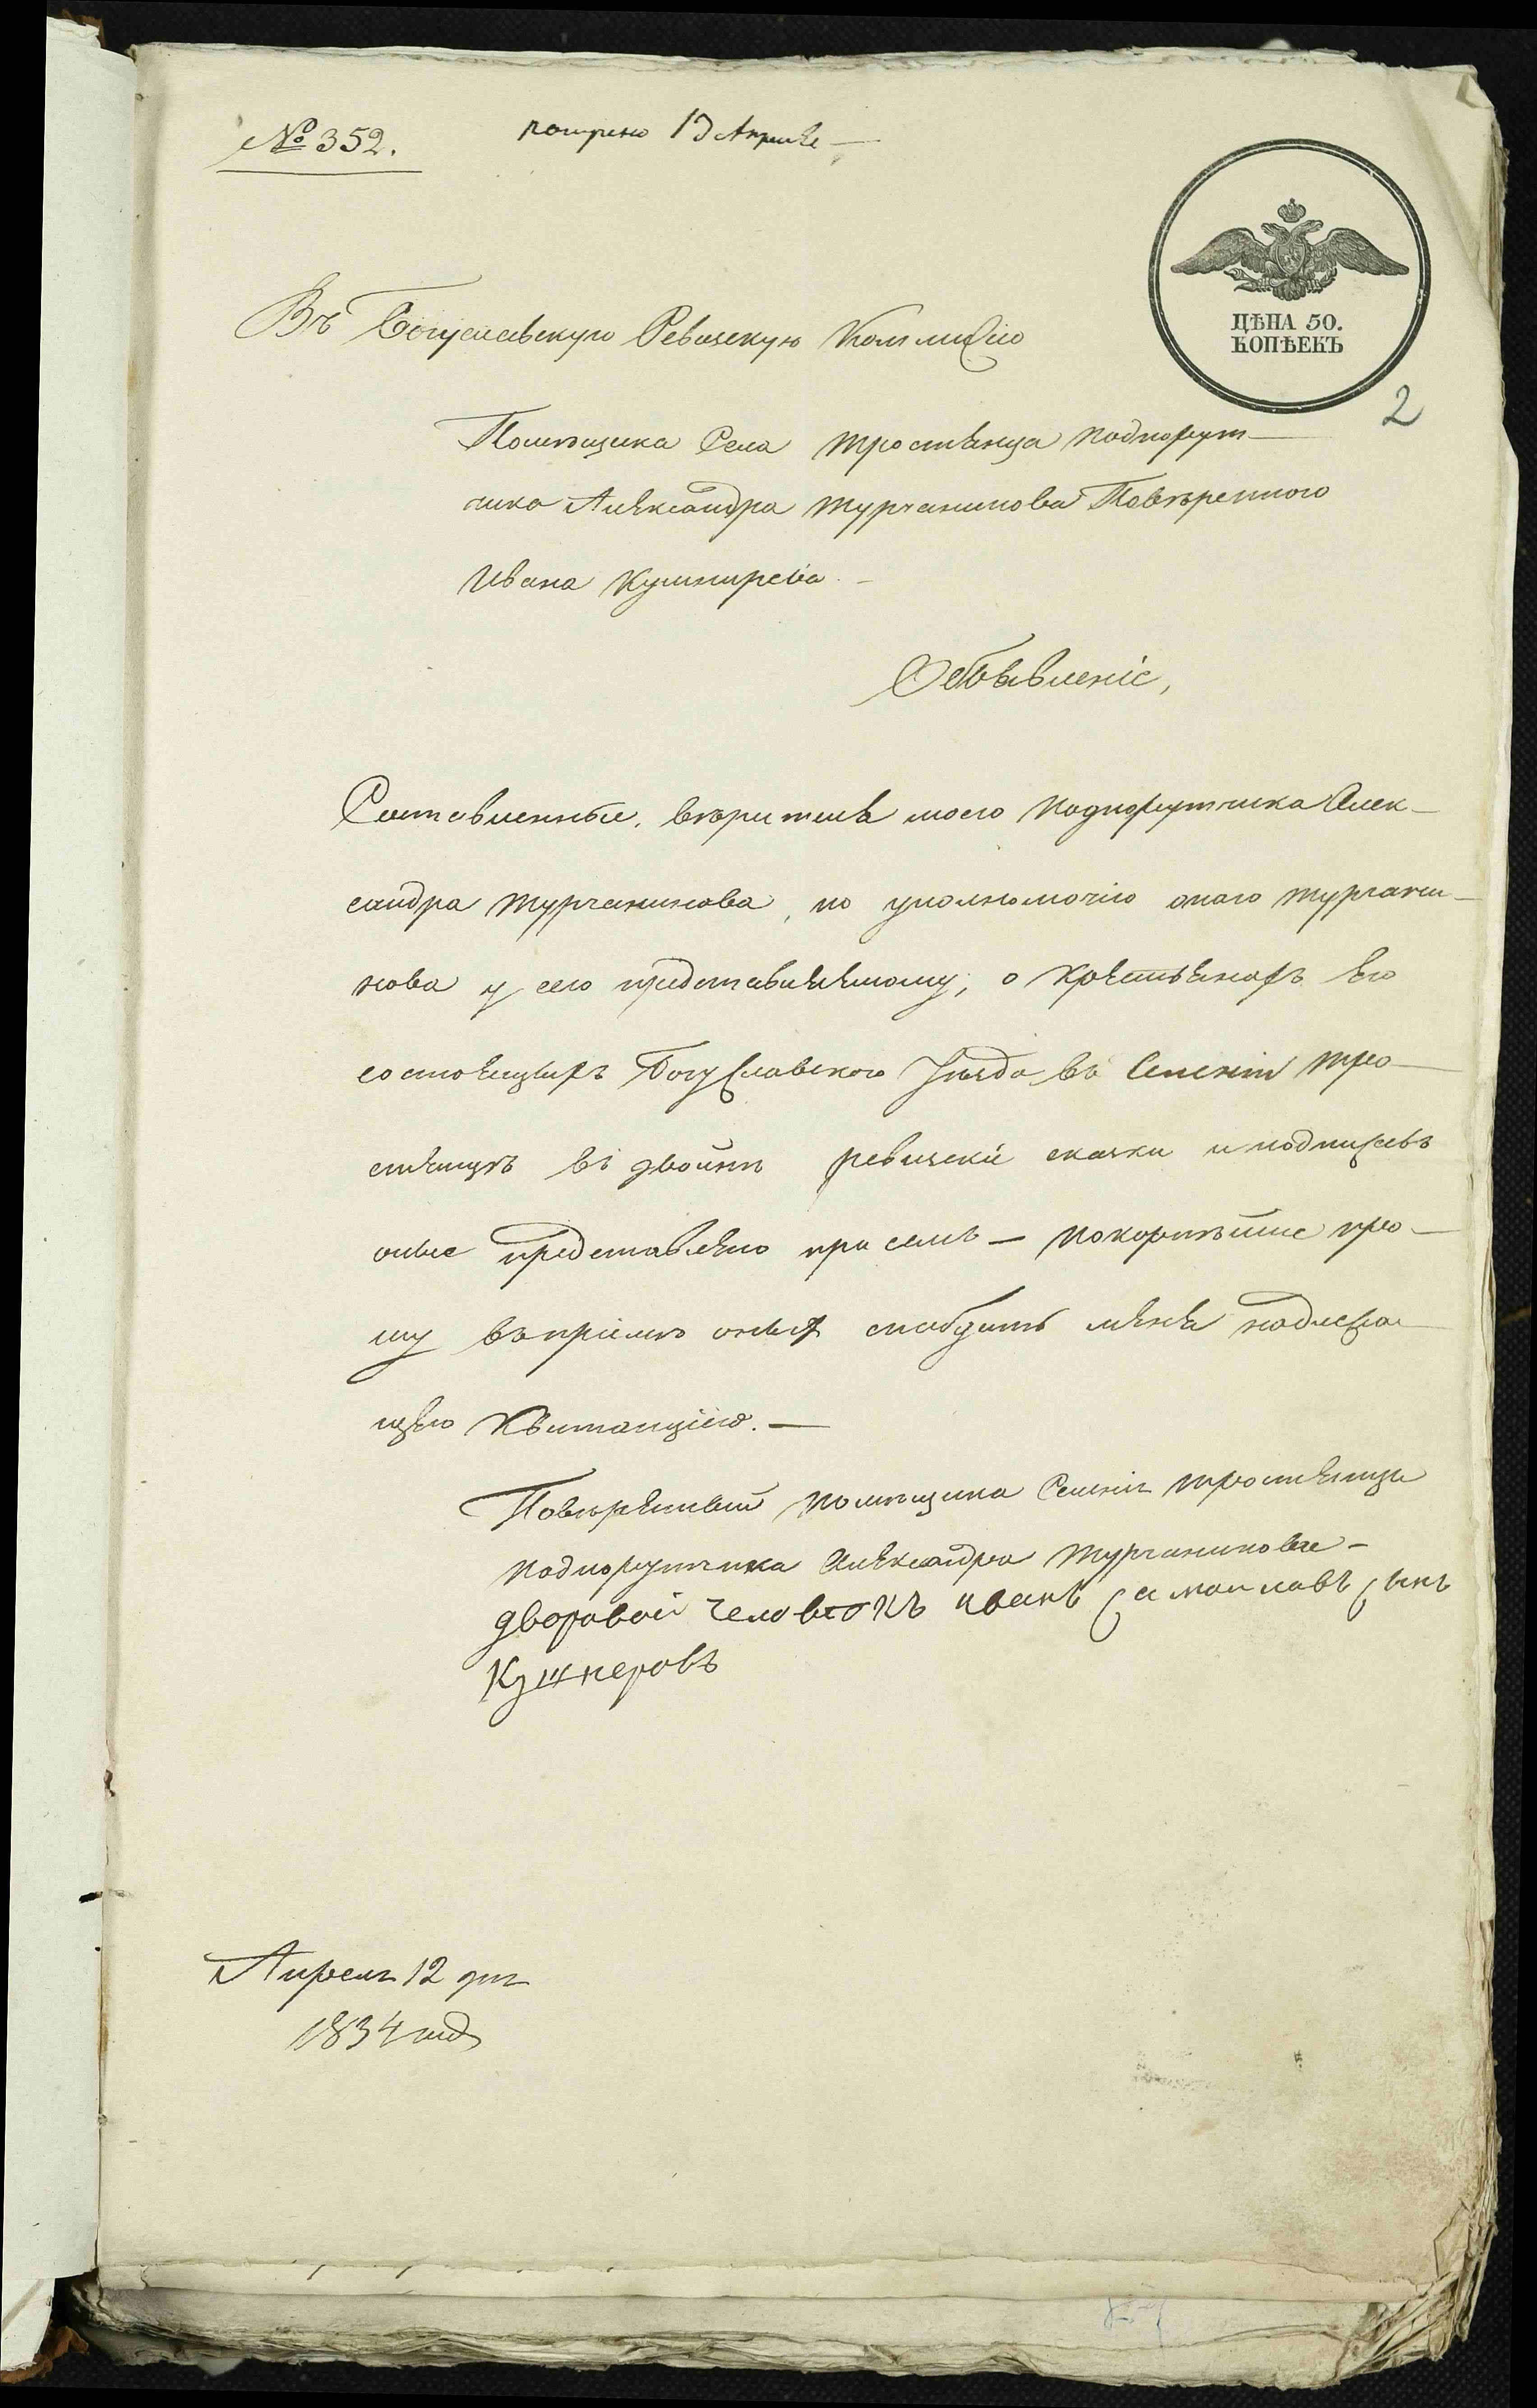 № 352.
получено 13 Апреля
ЦѢНА 50.
КОПѢЕКЪ
2
Въ Богуславскую Ревизскую Коммисію
Помѣщика Села Тростянца Подпорут-
чика Александра Турчанинова Повѣренного
Ивана Кушнирева
Объявленіе,
Составленные вѣрителя моего Подпорутчика Алек-
сандра Турчанинова, по уполномочію онаго Турчани-
нова у сего представляемому, о Крестьянахъ Его
состоящихъ Богуславского Уѣзда въ Селеніи Тро-
стянцѣ въ двойнѣ ревизскіе сказки и подписавъ
оные представляю при семъ — Покорнѣйше про-
шу въ пріемѣ оныхъ снабдить меня надлежа-
щею Квитанціею. —
Повѣренный помѣщика Селенія Тростянца
Подпорутчика Александра Турчанинова -
дворовой человекъ иванъ самоиловъ сынъ
Кушнеровъ
Апреля 12 дня
1834 года